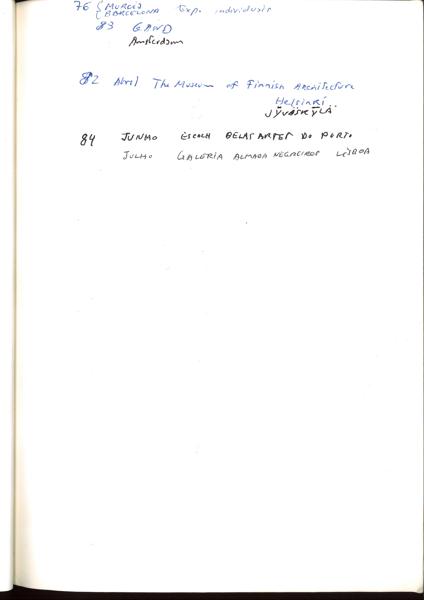 76 { MURCIA
{ BARCELONA Exp. individuais
83 G. AND
Amsterdam
82 Abril The Museum of Finnish Architecture
Helsinki
JŸVÄSKŸLÄ
84 JUNHO ESCOLA BELAS ARTES DO PORTO
JULHO GALERIA ALMADA NEGREIROS LISBOA